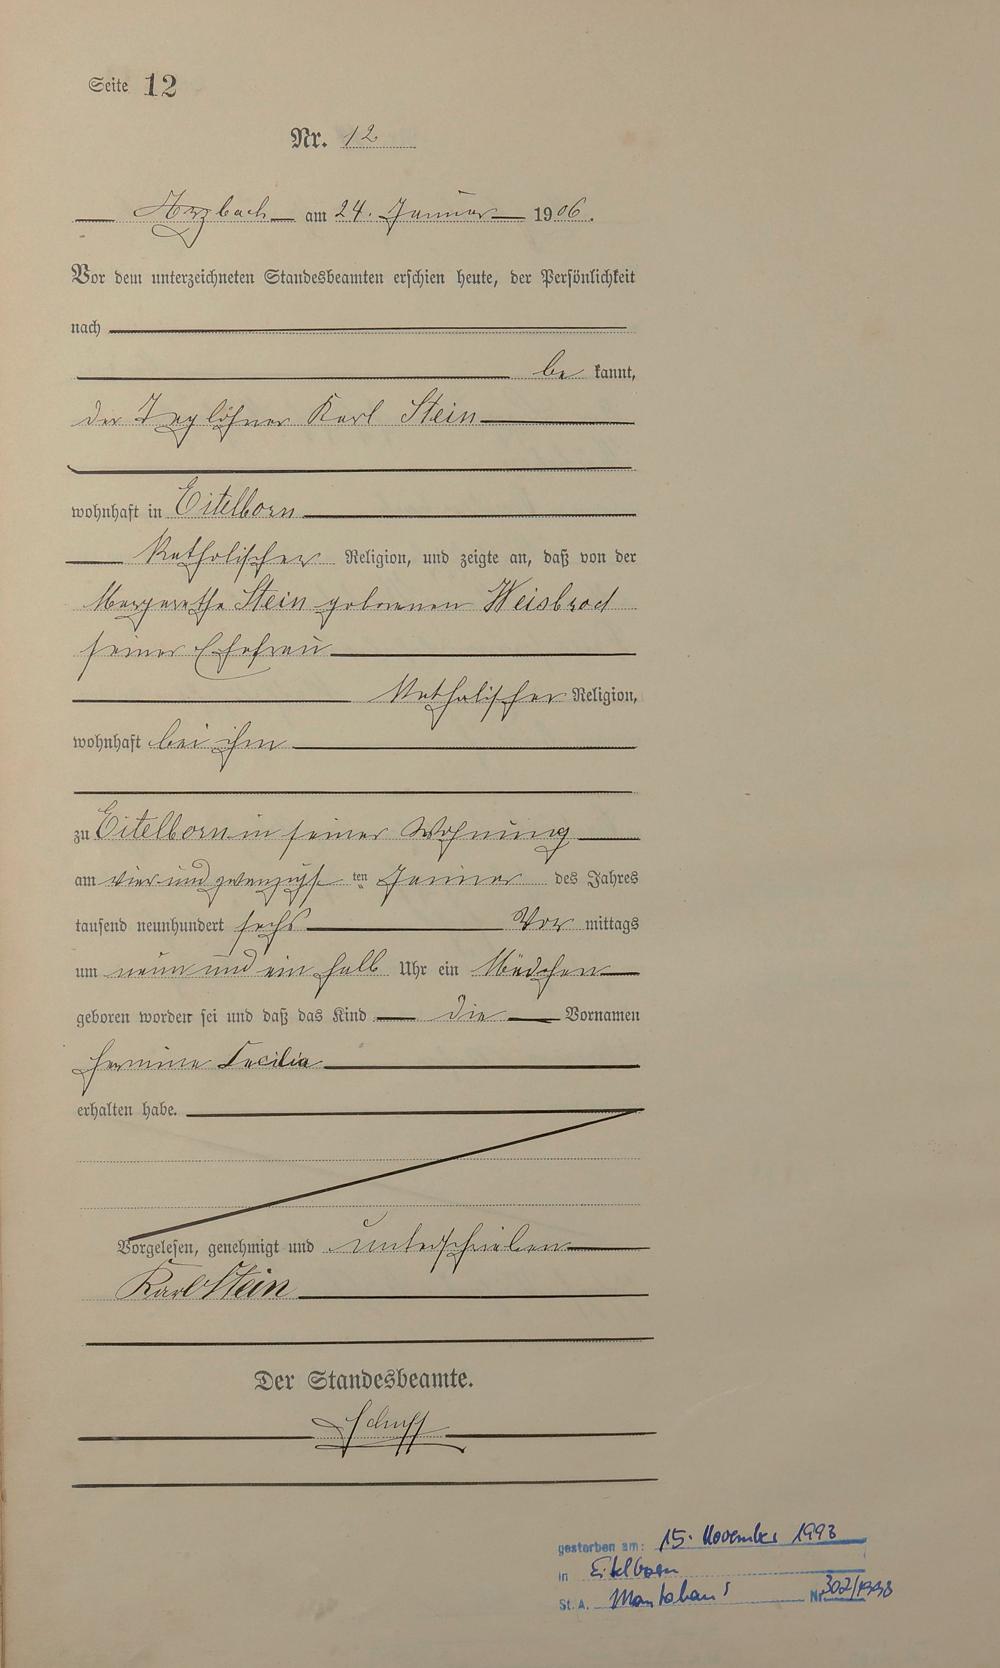 Seite 12
Nr. 12
Arzbach am 24. Januar 1906.
Vor dem unterzeichneten Standesbeamten erschien heute, der Persönlichkeit
nach
be kannt,
der Taglöhner Karl Stein
wohnhaft in Eitelborn
katholischer Religion, und zeigte an, daß von der
Margarethe Stein geborenen Weisbrod
seiner Ehefrau
katholischer Religion,
wohnhaft bei ihm
zu Eitelborn in seiner Wohnung
am vier und zwanzigs ten Januar des Jahres
tausend neunhundert sechs Vor mittags
um neun und ein halb Uhr ein Mädchen
geboren worden sei und daß das Kind die Vornamen
Hermine Cecilia
erhalten habe.
Vorgelesen, genehmigt und unterschrieben
Karl Stein
Der Standesbeamte.
gestorben am: 15. November 1993
in Eitelborn
St. A. Montabaur Nr 302/1993